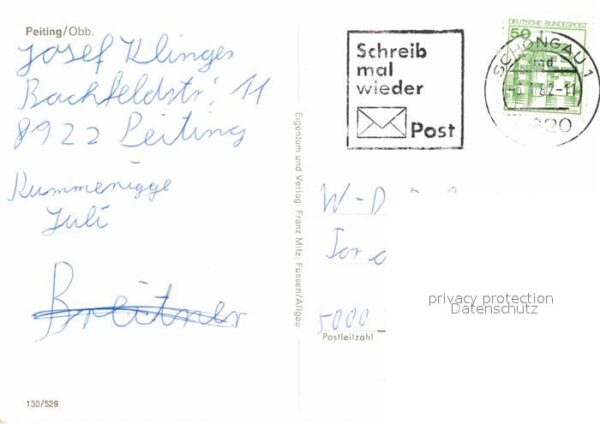 Peiting/Obb.
Josef Klinges
Bachfeldstr. 11
8922 Peiting
Rummenigge
Juli
Breitner
130/529
Eigentum und Verlag: Franz Milz, Füssen/Allgäu
Schreib
mal
wieder
Post
DEUTSCHE BUNDESPOST
50
SCHONGAU 1
md
82-11
920
W-D
Tor
5000
Postleitzahl
privacy protection
Datenschutz